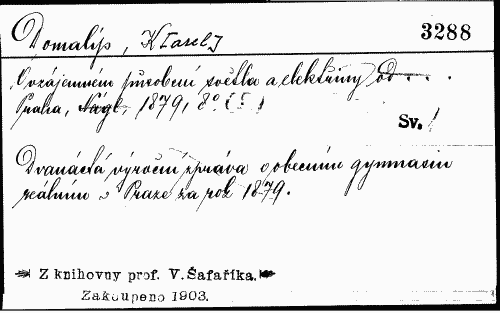 Domalíp, K[arel]
3288
O vzájemném působení světla a elektřiny od . . .
Praha, Nágl, 1879, 8º
Sv.
Dvanáctá výroční zpráva o obecním gymnasiu
reálním v Praze za rok 1879.
Z knihovny prof. V. Šafaříka.
Zakoupeno 1903.